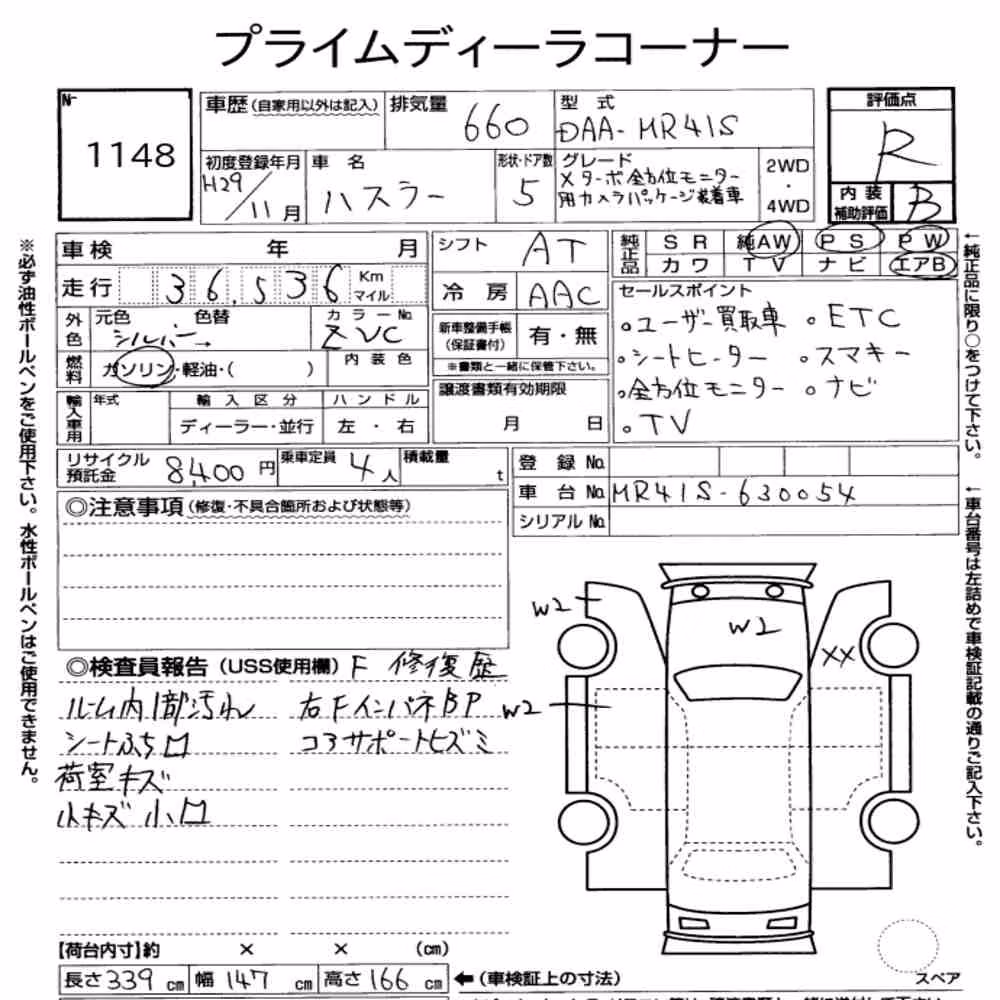 プライムディーラコーナー
No 1148
車歴(自家用以外は記入) 排気量 660
型式 DAA-MR41S
評価点 R
内装補助評価 B
初度登録年月 H29/11月
車名 ハスラー
形状・ドア数 5
グレード Xターボ全方位モニター用カメラパッケージ装着車
2WD・4WD
車検 年 月
走行 36,536 Km マイル
外色 元色 シルバー→ 色替
カラーNo. ZVC
燃料 ガソリン・軽油・( )
内装色
輸入車用 年式 輸入区分 ディーラー・並行 ハンドル 左・右
シフト AT
冷房 AAC
新車整備手帳(保証書付) 有・無
※書類と一緒に保管下さい。
譲渡書類有効期限
月 日
純正品 SR 純AW PS PW
カワ TV ナビ エアB
セールスポイント
○ユーザー買取車 ○ETC
○シートヒーター ○スマキー
○全方位モニター ○ナビ
○TV
リサイクル預託金 8,400円 乗車定員 4人 積載量 t
登録No.
車台No. MR41S-630054
シリアルNo.
◎注意事項(修復・不具合箇所および状態等)
◎検査員報告(USS使用欄) F 修復歴
ルーム内1部汚れ 右FインパネBP
シートふち口 コアサポートヒズミ
荷室キズ
小キズ 小口
W2
W2
XX
W2
【荷台内寸】約 × × (cm)
長さ339cm 幅147cm 高さ166cm ←(車検証上の寸法)
スペア
※必ず油性ボールペンをご使用下さい。水性ボールペンはご使用できません。
←純正品に限り○をつけて下さい。
←車台番号は左詰めで車検証記載の通りご記入下さい。